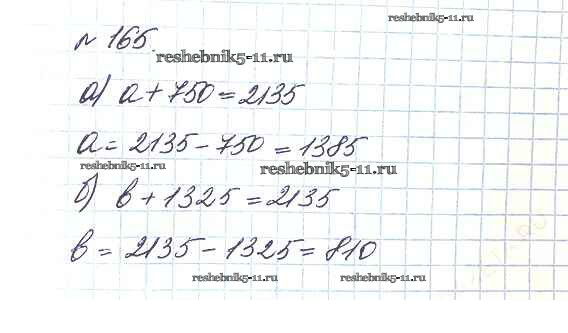 reshebnik5-11.ru
№ 165.
reshebnik5-11.ru
а) a + 750 = 2135
a = 2135 - 750 = 1385
reshebnik5-11.ru
reshebnik5-11.ru
б) b + 1325 = 2135
b = 2135 - 1325 = 810
reshebnik5-11.ru
reshebnik5-11.ru